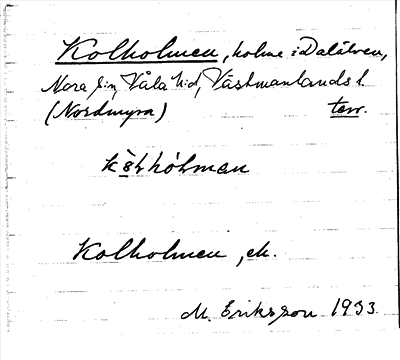 Kolholmen, holme i Dalälven,
Nora sn, Våla hd, Västmanlands l.
(Nordmyra) terr.
Kolholmen, ek.
M. Eriksson 1933